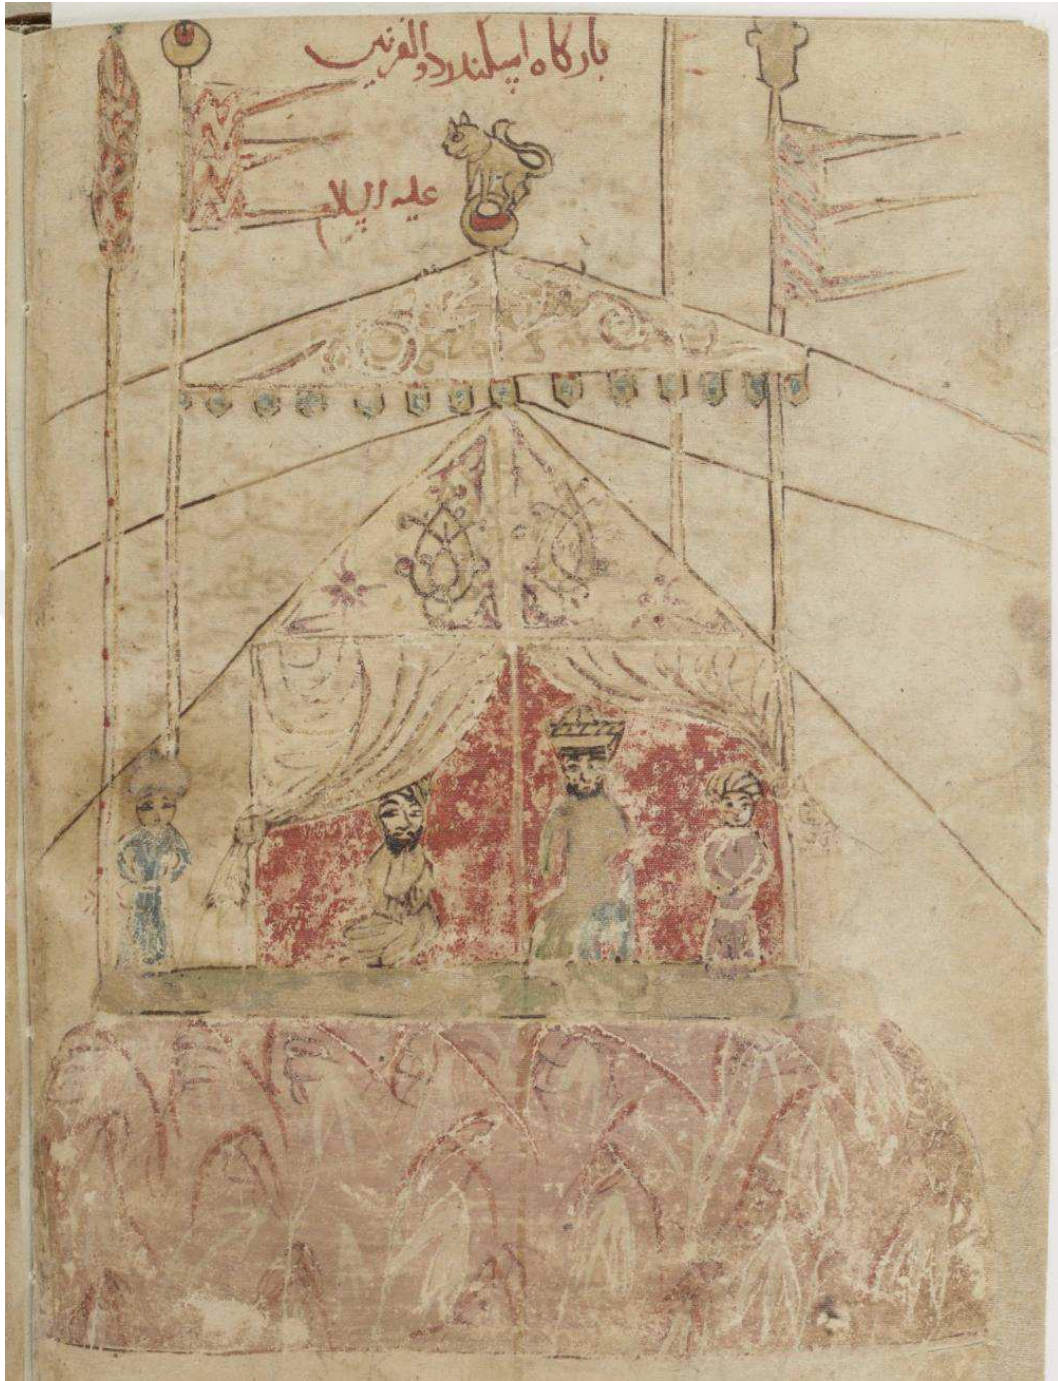 بارگاه اسکندر ذو القرنین
علیه السلام